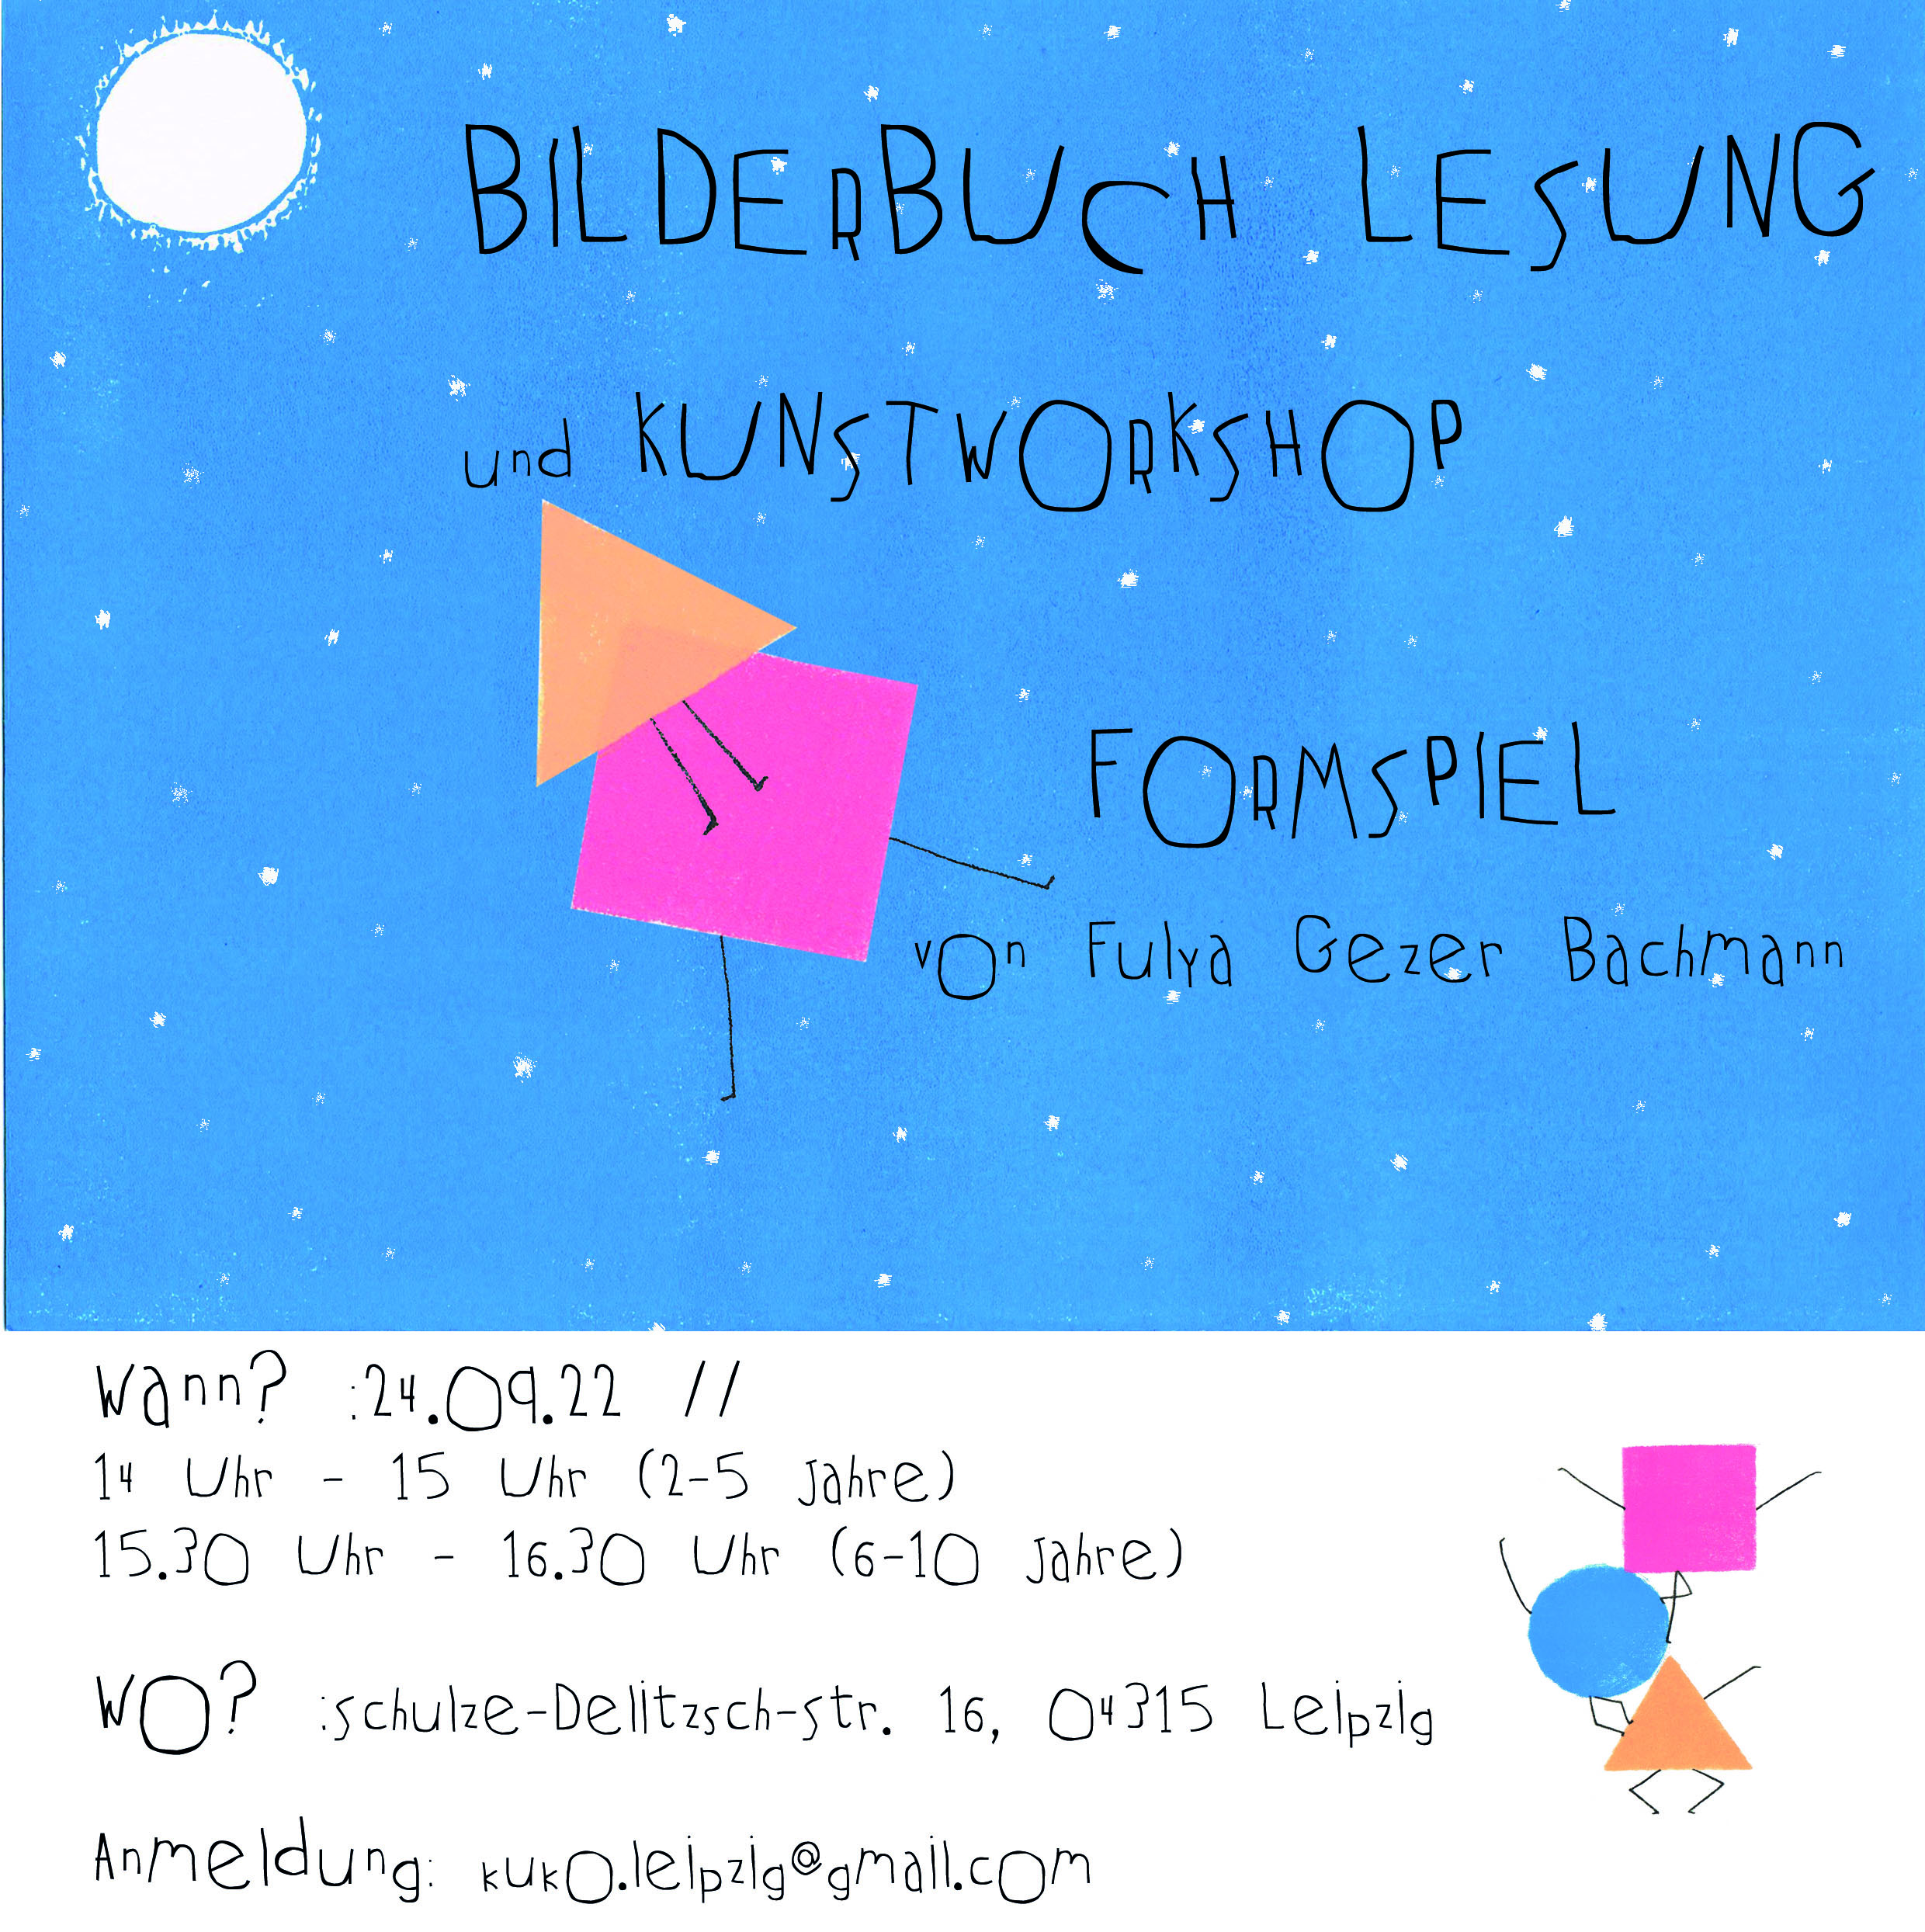 BILDERBUCH LESUNG
und KUNSTWORKSHOP
FORMSPIEL
von Fulya Gezer Bachmann
Wann? :24.09.22 //
14 Uhr - 15 Uhr (2-5 Jahre)
15.30 Uhr - 16.30 Uhr (6-10 Jahre)
WO? :schulze-Delitzsch-str. 16, 04315 Leipzig
Anmeldung: kuko.leipzig@gmail.com